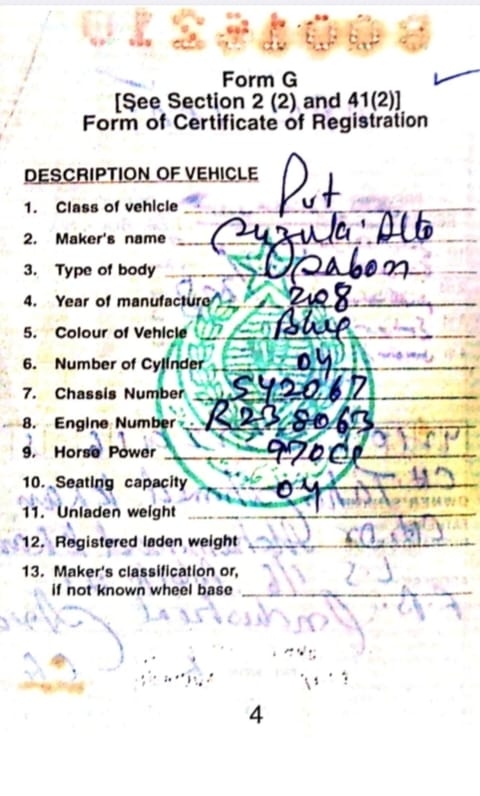 Form G
[See Section 2 (2) and 41(2)]
Form of Certificate of Registration
DESCRIPTION OF VEHICLE
1. Class of vehicle Put
2. Maker's name Suzuki Alto
3. Type of body
4. Year of manufacture 2008
5. Colour of Vehicle Blue
6. Number of Cylinder 04
7. Chassis Number 542067
8. Engine Number R238063
9. Horse Power 970cc
10. Seating capacity 04
11. Unladen weight
12. Registered laden weight
13. Maker's classification or,
if not known wheel base
4